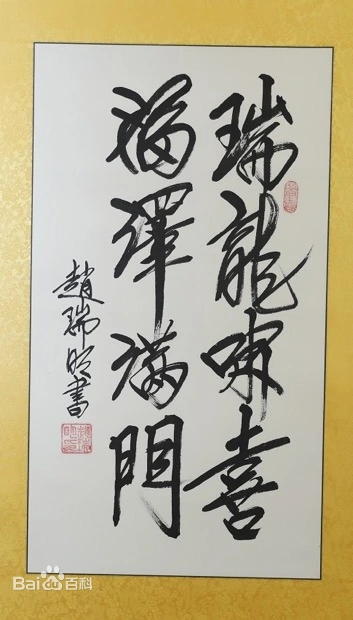 瑞龍嘯喜
福澤滿門
趙瑞明書
Baidu百科